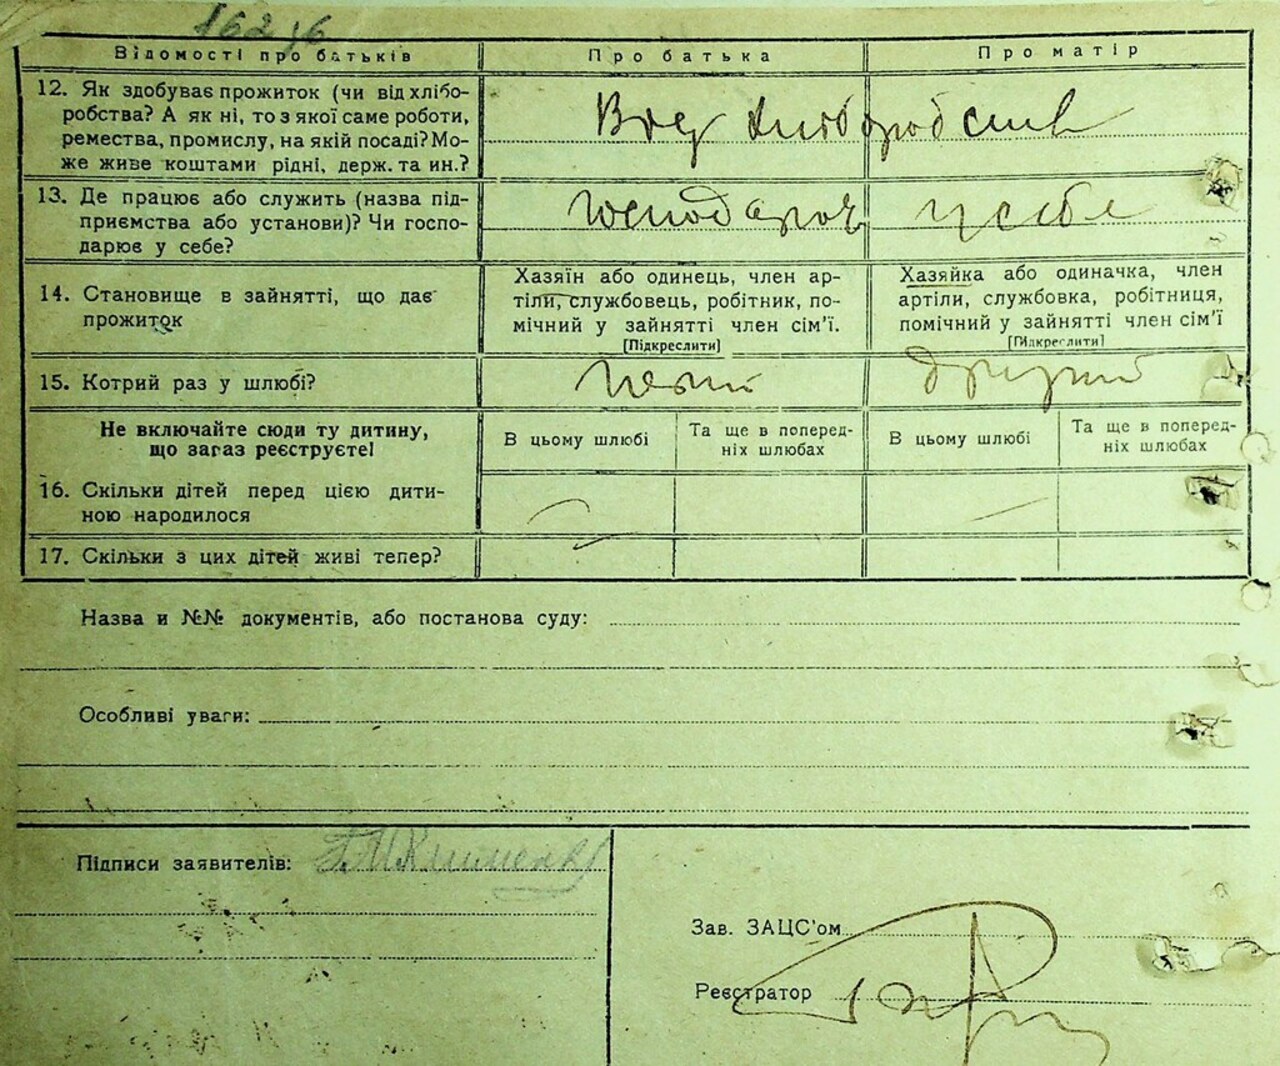 Відомості про батьків
Про батька
Про матір
12. Як здобуває прожиток (чи від хлібо-
робства? А як ні, то з якої саме роботи,
ремества, промислу, на якій посаді? Мо-
же живе коштами рідні, держ. та ин.?
Від хліборобства
13. Де працює або служить (назва під-
приємства або установи)? Чи госпо-
дарює у себе?
господарює у себе
14. Становище в зайнятті, що дає
прожиток
Хазяїн або одинець, член ар-
тіли, службовець, робітник, по-
мічний у зайнятті член сім'ї.
[Підкреслити]
Хазяйка або одиначка, член
артіли, службовка, робітниця,
помічний у зайнятті член сім'ї
[Підкреслити]
15. Котрий раз у шлюбі?
другий
Не включайте сюди ту дитину,
що загаз реєструєте!
В цьому шлюбі
Та ще в поперед-
ніх шлюбах
В цьому шлюбі
Та ще в поперед-
ніх шлюбах
16. Скільки дітей перед цією дити-
ною народилося
17. Скільки з цих дітей живі тепер?
Назва и №№ документів, або постанова суду:
Особливі уваги:
Підписи заявителів:
Зав. ЗАЦС'ом
Реєстратор